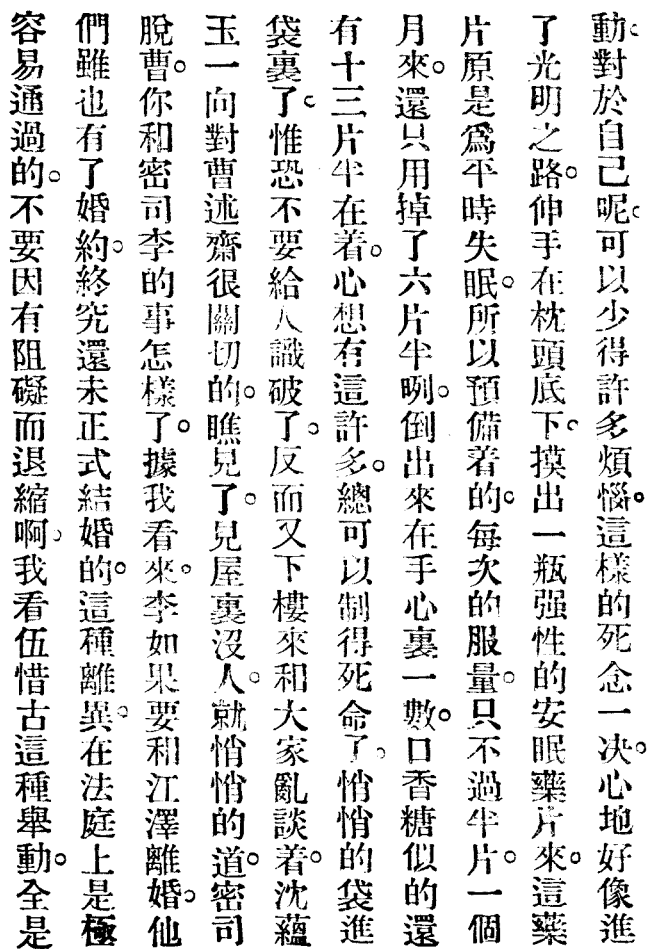 動。對於自己呢。可以少得許多煩惱。這樣的死念一决。心地好像進
了光明之路。伸手在枕頭底下。摸出一瓶强性的安眠藥片來。這藥
片原是爲平時失眠。所以預備着的。每次的服量。只不過半片。一個
月來。還只用掉了六片半咧。倒出來在手心裏一數。口香糖似的還
有十三片半在着。心想有這許多。總可以制得死命了。悄悄的袋進
袋裏了。惟恐不要給人識破了。反而又下樓來和大家亂談着。沈蘊
玉一向對曹述齋很關切的。瞧見了。見屋裏沒人。就悄悄的道密司
脫曹。你和密司李的事怎樣了。據我看來。李如果要和江澤離婚。他
們雖也有了婚約。終究還未正式結婚的。這種離異。在法庭上是極
容易通過的。不要因有阻礙而退縮啊。我看伍惜古這種舉動。全是